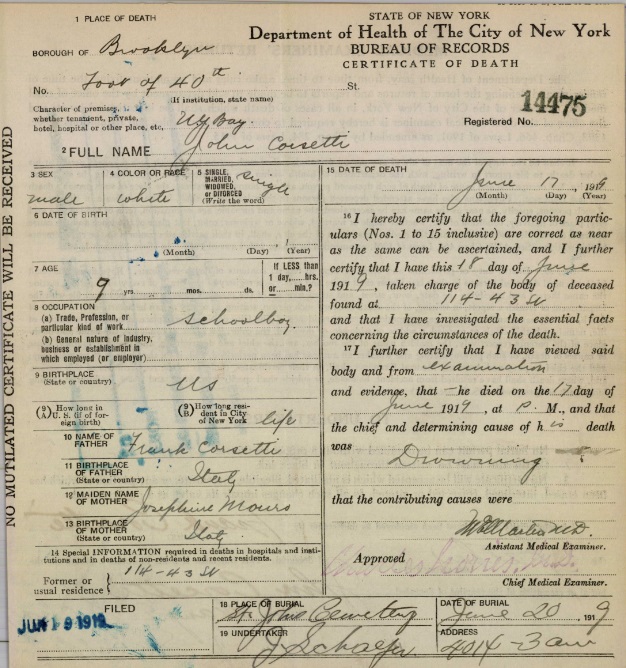 1 PLACE OF DEATH
STATE OF NEW YORK
Department of Health of The City of New York
BUREAU OF RECORDS
CERTIFICATE OF DEATH
BOROUGH OF Brooklyn
No. Foot of 40th St.
(If institution, state name)
Character of premises, whether tenement, private, hotel, hospital or other place, etc, NY Bay
14475
Registered No.
2 FULL NAME John Corsetti
3 SEX
male
4 COLOR OR RACE
white
5 SINGLE, MARRIED, WIDOWED, or DIVORCED
(Write the word)
single
6 DATE OF BIRTH
(Month) (Day) (Year)
7 AGE
9 yrs. mos. ds.
If LESS than
1 day, hrs.
or min.?
8 OCCUPATION
(a) Trade, Profession, or
particular kind of work
Schoolboy
(b) General nature of industry,
business or establishment in
which employed (or employer)
9 BIRTHPLACE
(State or country)
US
(9) How long in
A U. S. (if of for-
eign birth)
(9) How long resi-
B dent in City
of New York
life
10 NAME OF
FATHER
Frank Corsetti
11 BIRTHPLACE
OF FATHER
(State or country)
Italy
12 MAIDEN NAME
OF MOTHER
Josephine
13 BIRTHPLACE
OF MOTHER
(State or country)
Italy
14 Special INFORMATION required in deaths in hospitals and insti-
tutions and in deaths of non-residents and recent residents.
Former or
usual residence
114-43 St
15 DATE OF DEATH
June 17, 1919
(Month) (Day) (Year)
16 I hereby certify that the foregoing partic-
ulars (Nos. 1 to 15 inclusive) are correct as near
as the same can be ascertained, and I further
certify that I have this 18 day of June
1919, taken charge of the body of deceased
found at 114-43 St
and that I have investigated the essential facts
concerning the circumstances of the death.
17 I further certify that I have viewed said
body and from examination
and evidence, that he died on the 17 day of
June 1919, at P. M., and that
the chief and determining cause of his death
was
Drowning
that the contributing causes were
M.D.
Assistant Medical Examiner.
Approved
Chief Medical Examiner.
FILED
JUN 19 1919
18 PLACE OF BURIAL
St. John Cemetery
DATE OF BURIAL
June 20 1919
19 UNDERTAKER
J Schaefer
ADDRESS
4014-3 ave
NO MUTILATED CERTIFICATE WILL BE RECEIVED